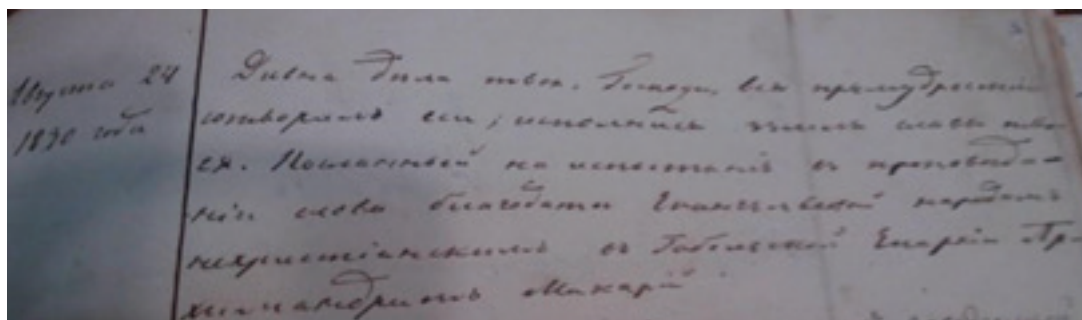 Августа 24
1830 года
Дивна дела твоя, Господи, вся премудростію
сотворилъ еси; исполнися земля славы тво
ея. Посланный на испытаніе въ проповѣда-
ніи слова благодати Евангельской народамъ
нехристіанскимъ въ Тобольской Епархіи Ар-
химандритъ Макарій